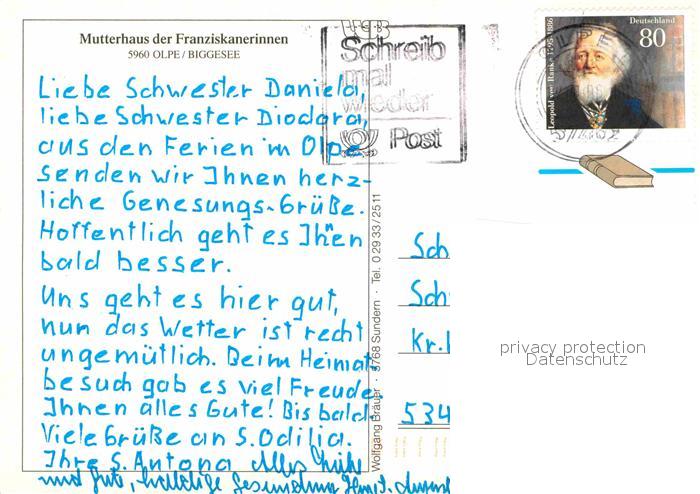 Mutterhaus der Franziskanerinnen
5960 OLPE / BIGGESEE
Liebe Schwester Daniela,
liebe Schwester Diodora,
aus den Ferien im Olpe
senden wir Ihnen herz-
liche Genesungs-Grüße.
Hoffentlich geht es Ihnen
bald besser.
Uns geht es hier gut,
nun das Wetter ist recht
ungemütlich. Beim Heimat
besuch gab es viel Freude
Ihnen alles Gute! Bis bald
Viele Grüße an S. Odilia.
Ihre S. Antona Alles
und gute,
Wolfgang Bräuer · 5768 Sundern · Tel. 0 29 33 / 25 11
Schreib
mal
wieder
Post
Deutschland
80
Leopold von Ranke 1795-1886
OLPE
Sch
Sch
Kr.
534
privacy protection
Datenschutz